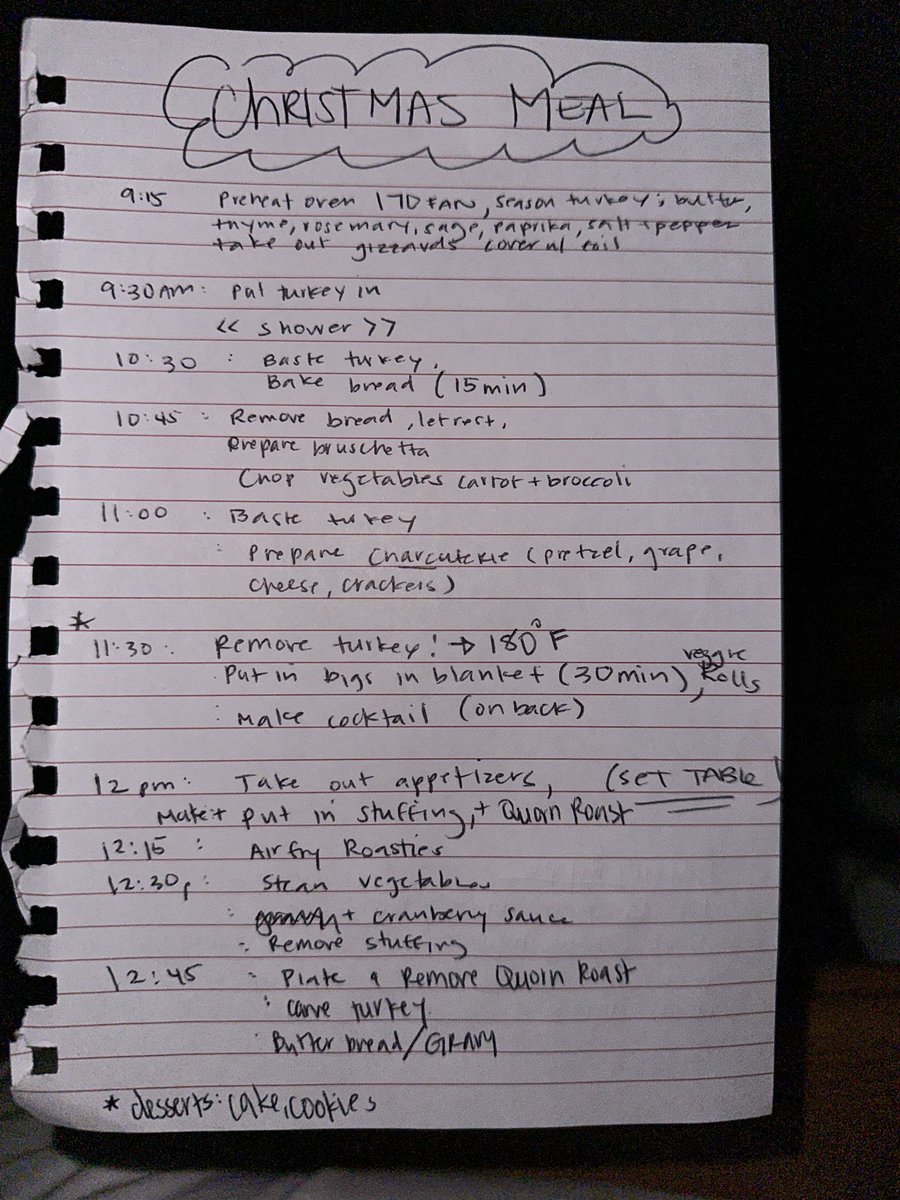 ChRISTMAS MEAL
9:15 Preheat oven 170 FAN, season turkey; butter,
thyme, rosemary, sage, paprika, salt + pepper
take out gizzards cover w/ foil
9:30AM: Put turkey in
<< shower >>
10:30 : Baste turkey,
Bake bread (15min)
10:45 : Remove bread, let rest,
Prepare bruschetta
Chop vegetables carrot + broccoli
11:00 : Baste turkey
: Prepare Charcuterie (pretzel, grape,
cheese, crackers)
*
11:30 : Remove turkey! → 180°F
veggie
Put in pigs in blanket (30min), Rolls
: Make cocktail (on back)
12pm: Take out appetizers, (SET TABLE)
Make + put in stuffing, + Quorn Roast
12:15 : Airfry Roasties
12:30p: Steam vegetables
: + cranberry sauce
: Remove stuffing
12:45 : Plate & Remove Quorn Roast
: Carve turkey
: Butter bread/GRAVY
* desserts: cake, cookies